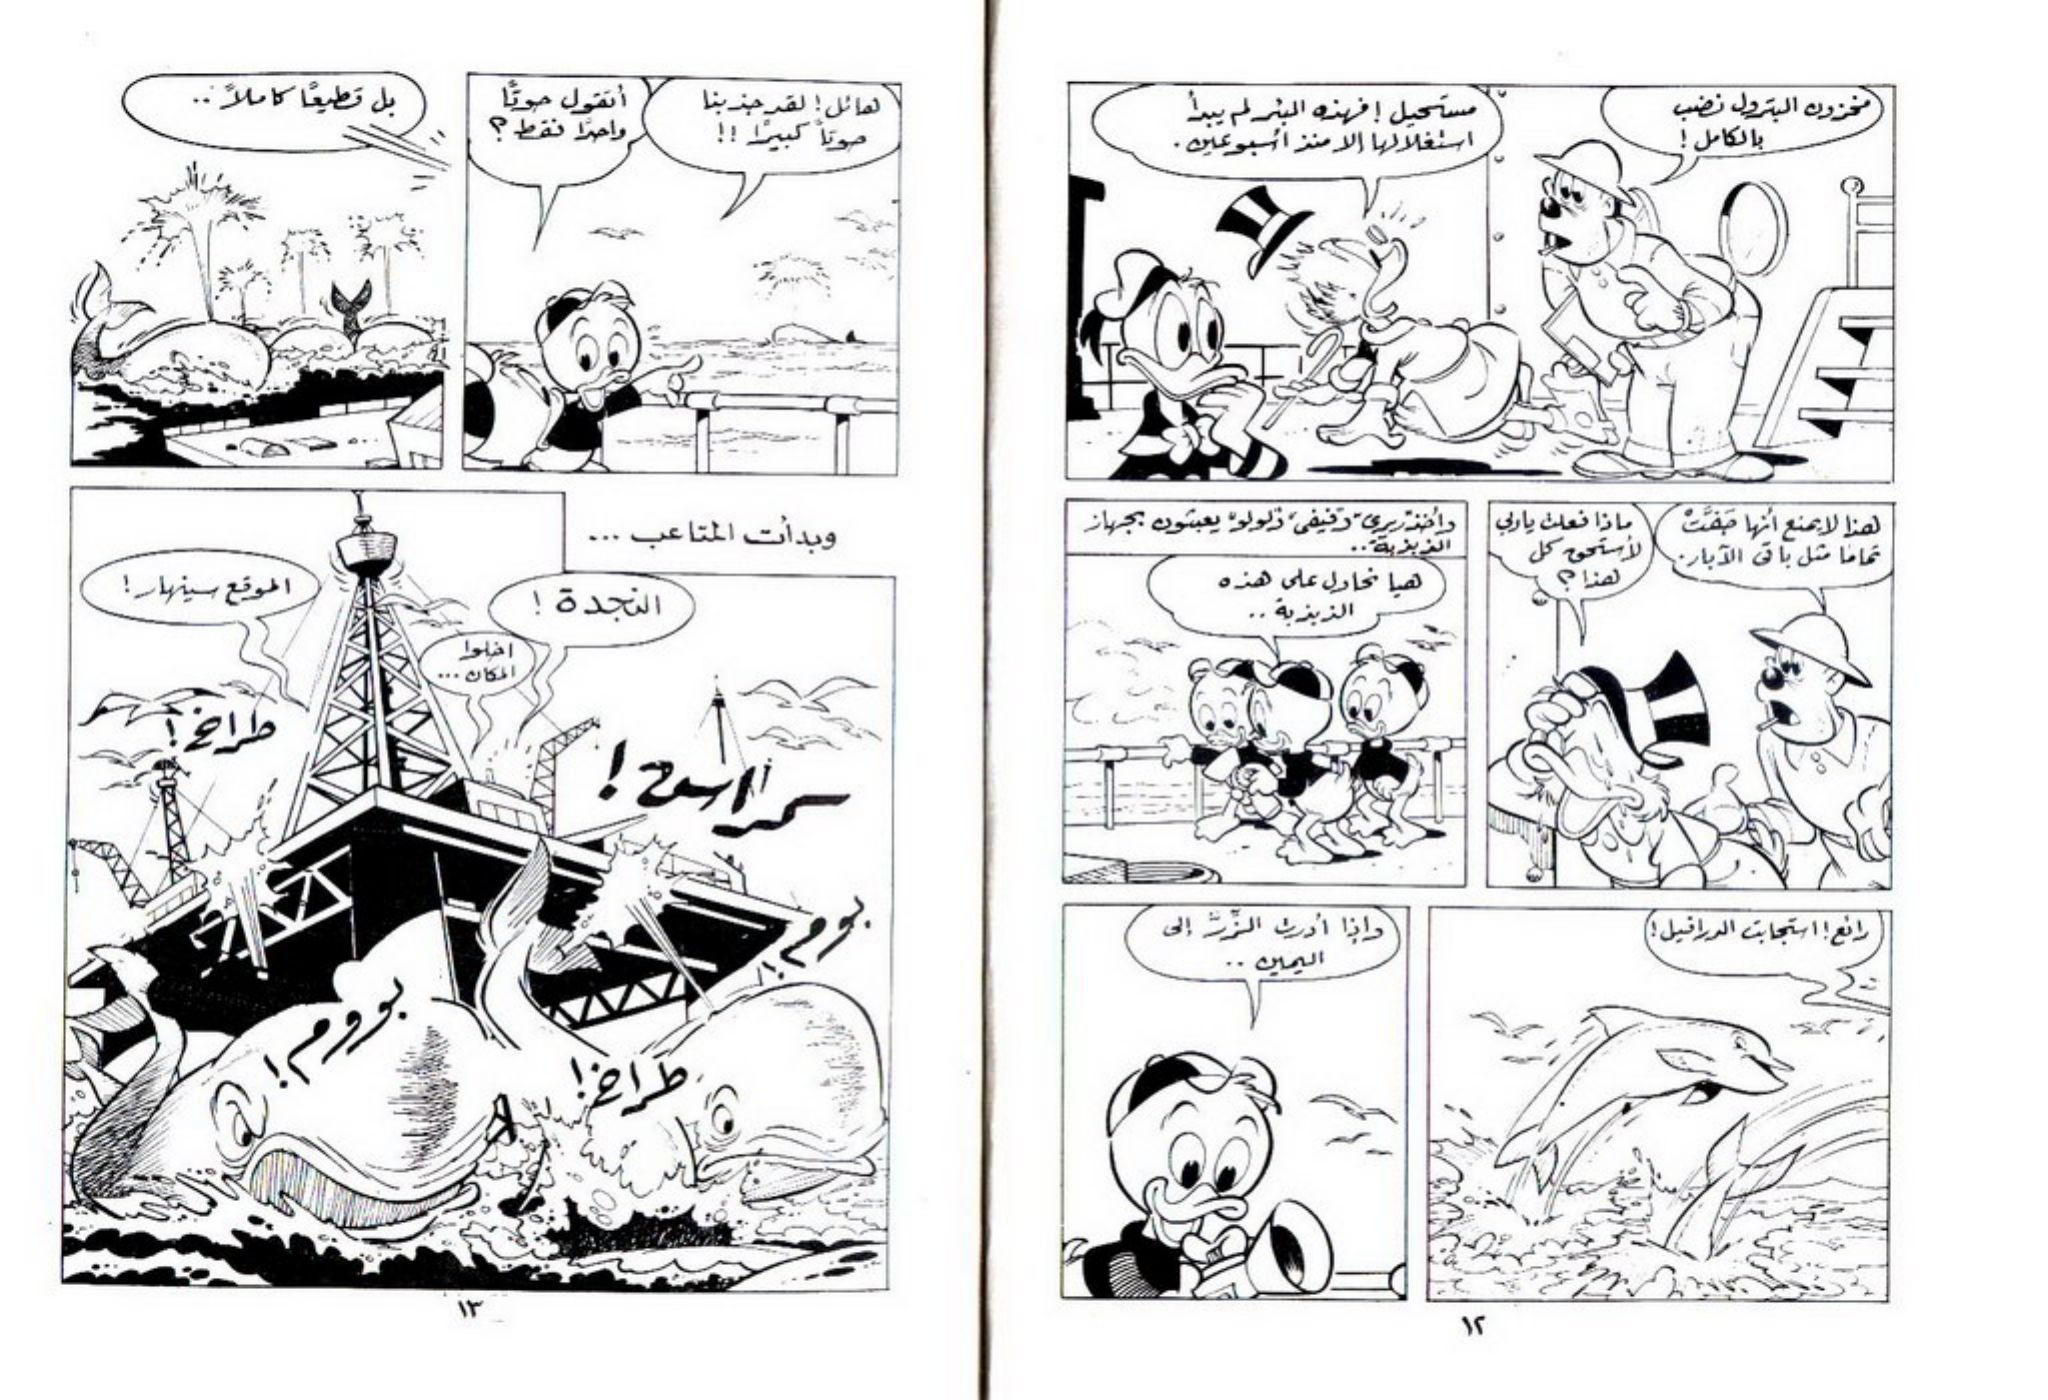 مخزون البترول نضب
بالكامل !
مستحيل ! فهذه البئر لم يبدأ
استغلالها إلا منذ أسبوعين .
هذا لا يمنع أنها جَفَّتْ
تمامًا مثل باقى الآبار .
ماذا فعلت ياربى
لأستحق كل
هذا ؟
وأخذ "زيزى" و"فيفى" و"لولو" يعبثون بجهاز
الذبذبة ..
هيا نحاول على هذه
الذبذبة ..
رائع ! استجابت الدرافيل !
وإذا أدرت الزِّرّ إلى
اليمين ..
١٢
هائل ! لقد جذبنا
حوتًا كبيرًا !!
أتقول حوتًا
واحدًا فقط ؟
بل قطيعًا كاملاً ..
وبدأت المتاعب ...
النجدة !
اخلوا
المكان ...
الموقع سينهار !
طراخ !
بووم !
بووم !
طراخ !
١٣